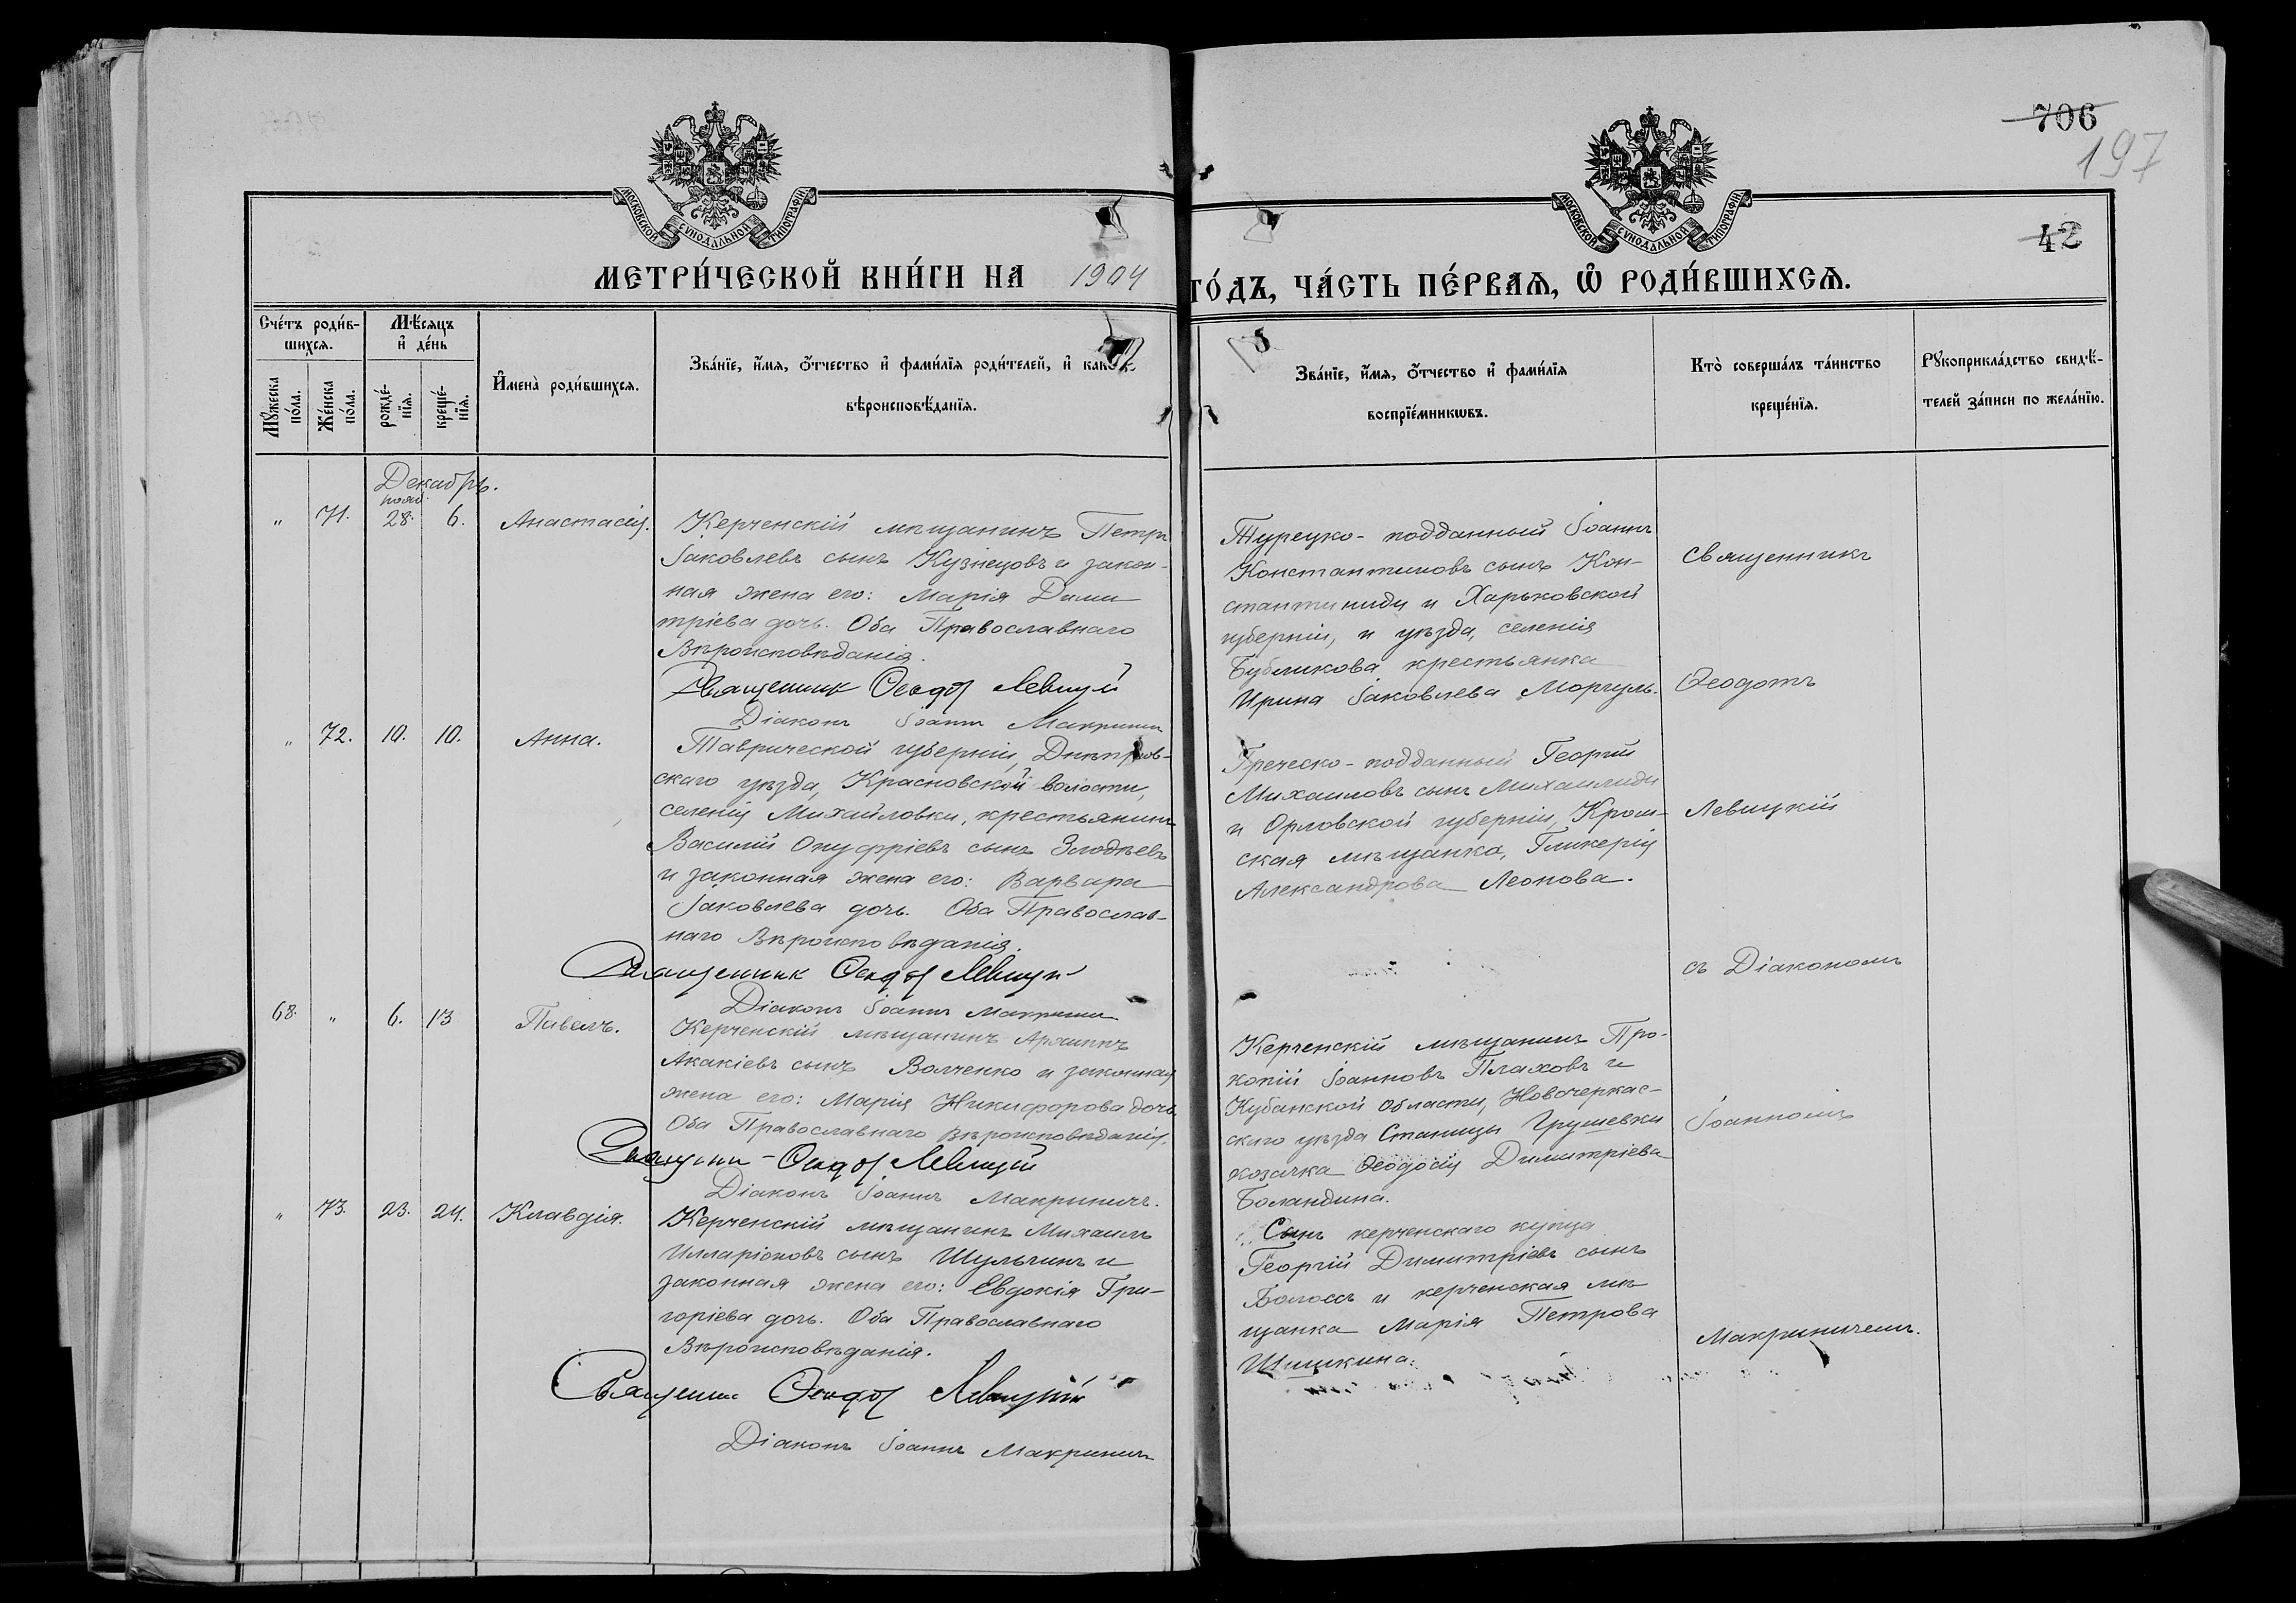 706
197
42
МОСКОВСКОЙ СУНОДАЛЬНОЙ ТИПОГРАФІИ
МОСКОВСКОЙ СУНОДАЛЬНОЙ ТИПОГРАФІИ
МЕТРИ́ЧЕСКОЙ КНИ́ГИ НА 1904
ГО́ДЪ, ЧА́СТЬ ПЕ́РВАѦ, Ѽ РОДИ́ВШИХСѦ.
Сче́тъ роди́в-
шихсѧ.
Мꙋжеска по́ла.
Же́нска по́ла.
Мѣ́сѧцъ
и҆ де́нь
рожде́-
нїѧ.
креще́-
нїѧ.
И҆мена̀ роди́вшихсѧ.
Зва́нїе, и҆́мѧ, ѻ҆́тчество и҆ фами́лїѧ роди́телей, и҆ како́й
вѣроисповѣ́данїѧ.
Зва́нїе, и҆́мѧ, ѻ҆́тчество и҆ фами́лїѧ
воспрїе́мникѡвъ.
Кто̀ соверша́лъ та́инство
креще́нїѧ.
Рꙋкоприкла́дство свидѣ́-
телей за́писи по жела́нїю.
Декабрь.
нояб.
" 71. 28. 6. Анастасія.
Керченскій мѣщанинъ Петръ
Іаковлевъ сынъ Кузнецовъ и закон-
ная жена его: Марія Дими
тріева дочь. Оба Православнаго
Вѣроисповѣданія.
Священник Феодот Левицкій
Діаконъ Іоаннъ Макринич
Турецко-подданный Іоаннъ
Константиновъ сынъ Кон-
стантиниди и Харьковской
губерніи, и уѣзда, селенія
Бубликова крестьянка
Ирина Іаковлева Моргуль.
Священникъ
Ѳеодотъ
Левицкій
съ Діакономъ
Іоанномъ
Макриничемъ.
" 72. 10. 10. Анна.
Таврической губерніи, Днѣпров-
скаго уѣзда, Красновской волости,
селенія Михайловки, крестьянинъ
Василій Онуфріевъ сынъ Злодѣевъ
и законная жена его: Варвара
Іаковлева дочь. Оба Православ-
наго Вѣроисповѣданія.
Священник Феодот Левицкій
Діаконъ Іоаннъ Макринич
Греческо-подданный Георгій
Михаиловъ сынъ Михаилиди
и Орловской губерніи, Кром-
ская мѣщанка, Гликерія
Александрова Леонова.
68. " 6. 13 Павелъ.
Керченскій мѣщанинъ Архиппъ
Акакіевъ сынъ Волченко и законная
жена его: Марія Никифорова дочь
Оба Православнаго Вѣроисповѣданія.
Священник Феодот Левицкій
Діаконъ Іоаннъ Макриничъ.
Керченскій мѣщанинъ Про-
копій Іоанновъ Плаховъ и
Кубанской области, Новочеркас-
скаго уѣзда Станицы Грушевки
козачка Ѳеодосія Димитріева
Боландина.
" 73. 23. 24. Клавдія.
Керченскій мѣщанинъ Михаилъ
Илларіоновъ сынъ Шульгинъ и
законная жена его: Евдокія Гри-
горіева дочь. Оба Православнаго
Вѣроисповѣданія.
Священник Феодот Левицкій
Діаконъ Іоаннъ Макринич
Сынъ керченскаго купца
Георгій Димитріевъ сынъ
Болоссъ и керченская мѣ
щанка Марія Петрова
Шишкина.